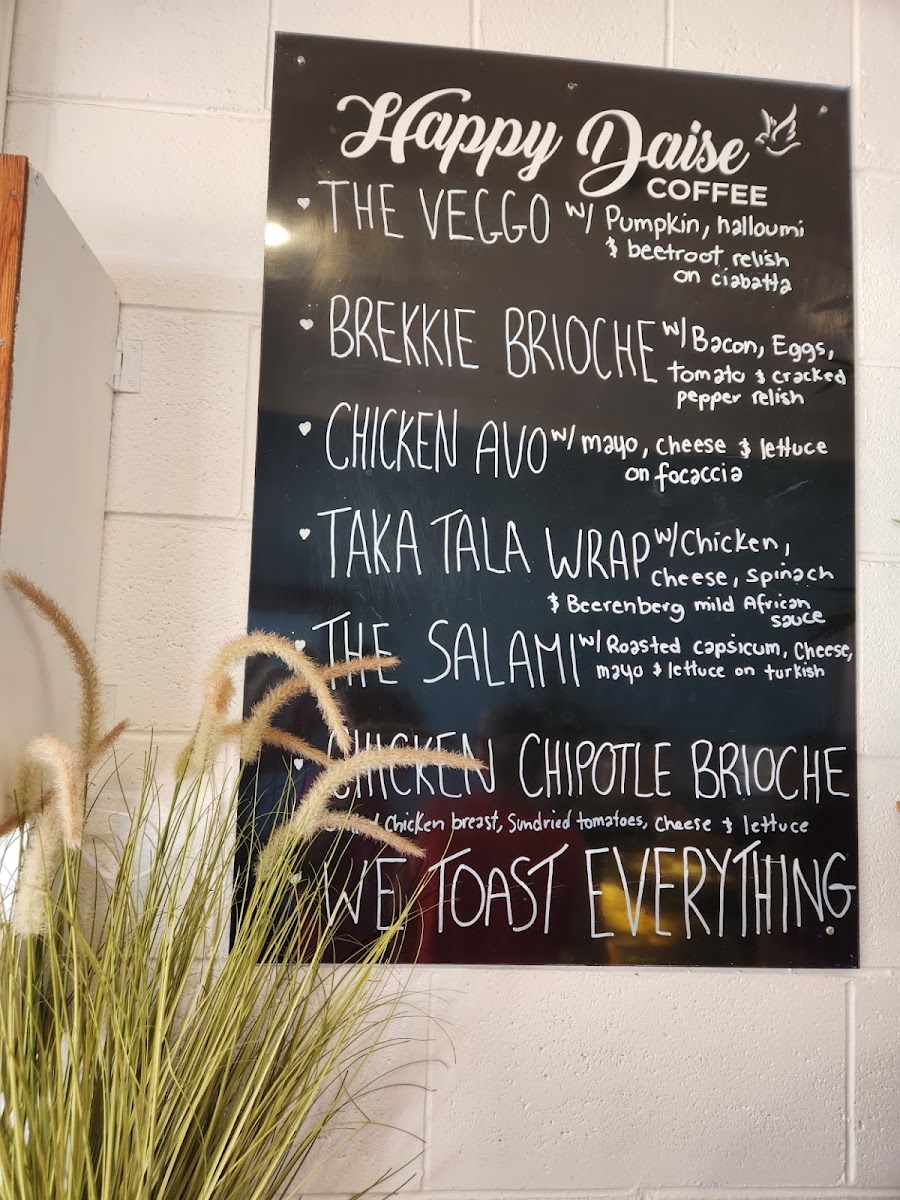 Happy Daise
COFFEE
THE VEGGO w/ Pumpkin, halloumi
& beetroot relish
on ciabatta
BREKKIE BRIOCHE w/ Bacon, Eggs,
tomato & cracked
pepper relish
CHICKEN AVO w/ mayo, cheese & lettuce
on focaccia
TAKA TALA WRAP w/ Chicken,
cheese, spinach
& Beerenberg mild African
sauce
THE SALAMI w/ Roasted capsicum, cheese,
mayo & lettuce on turkish
CHICKEN CHIPOTLE BRIOCHE
Chicken breast, Sundried tomatoes, cheese & lettuce
WE TOAST EVERYTHING